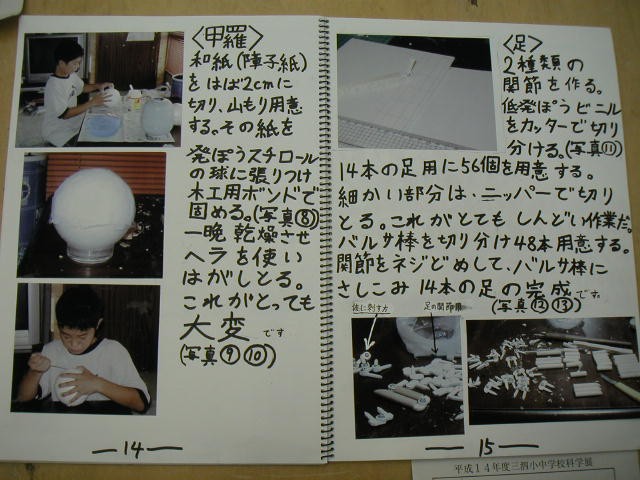 〈甲羅〉
和紙(障子紙)
をはば2cmに
切り、山もり用意
する。その紙を
発ぽうスチロール
の球に張りつけ
木工用ボンドで
固める。(写真⑧)
一晩乾燥させ
ヘラを使い
はがしとる。
これがとっても
大変です
(写真⑨⑩)
14
〈足〉
2種類の
関節を作る。
低発ぽうビニル
をカッターで切り
分ける。(写真⑪)
14本の足用に56個を用意する。
細かい部分は、ニッパーで切り
とる。これがとてもしんどい作業だ。
バルサ棒を切り分け48本用意する。
関節をネジどめして、バルサ棒に
さしこみ14本の足の完成です。
(写真⑫⑬)
足の関節用
15
平成14年度三泗小中学校科学展